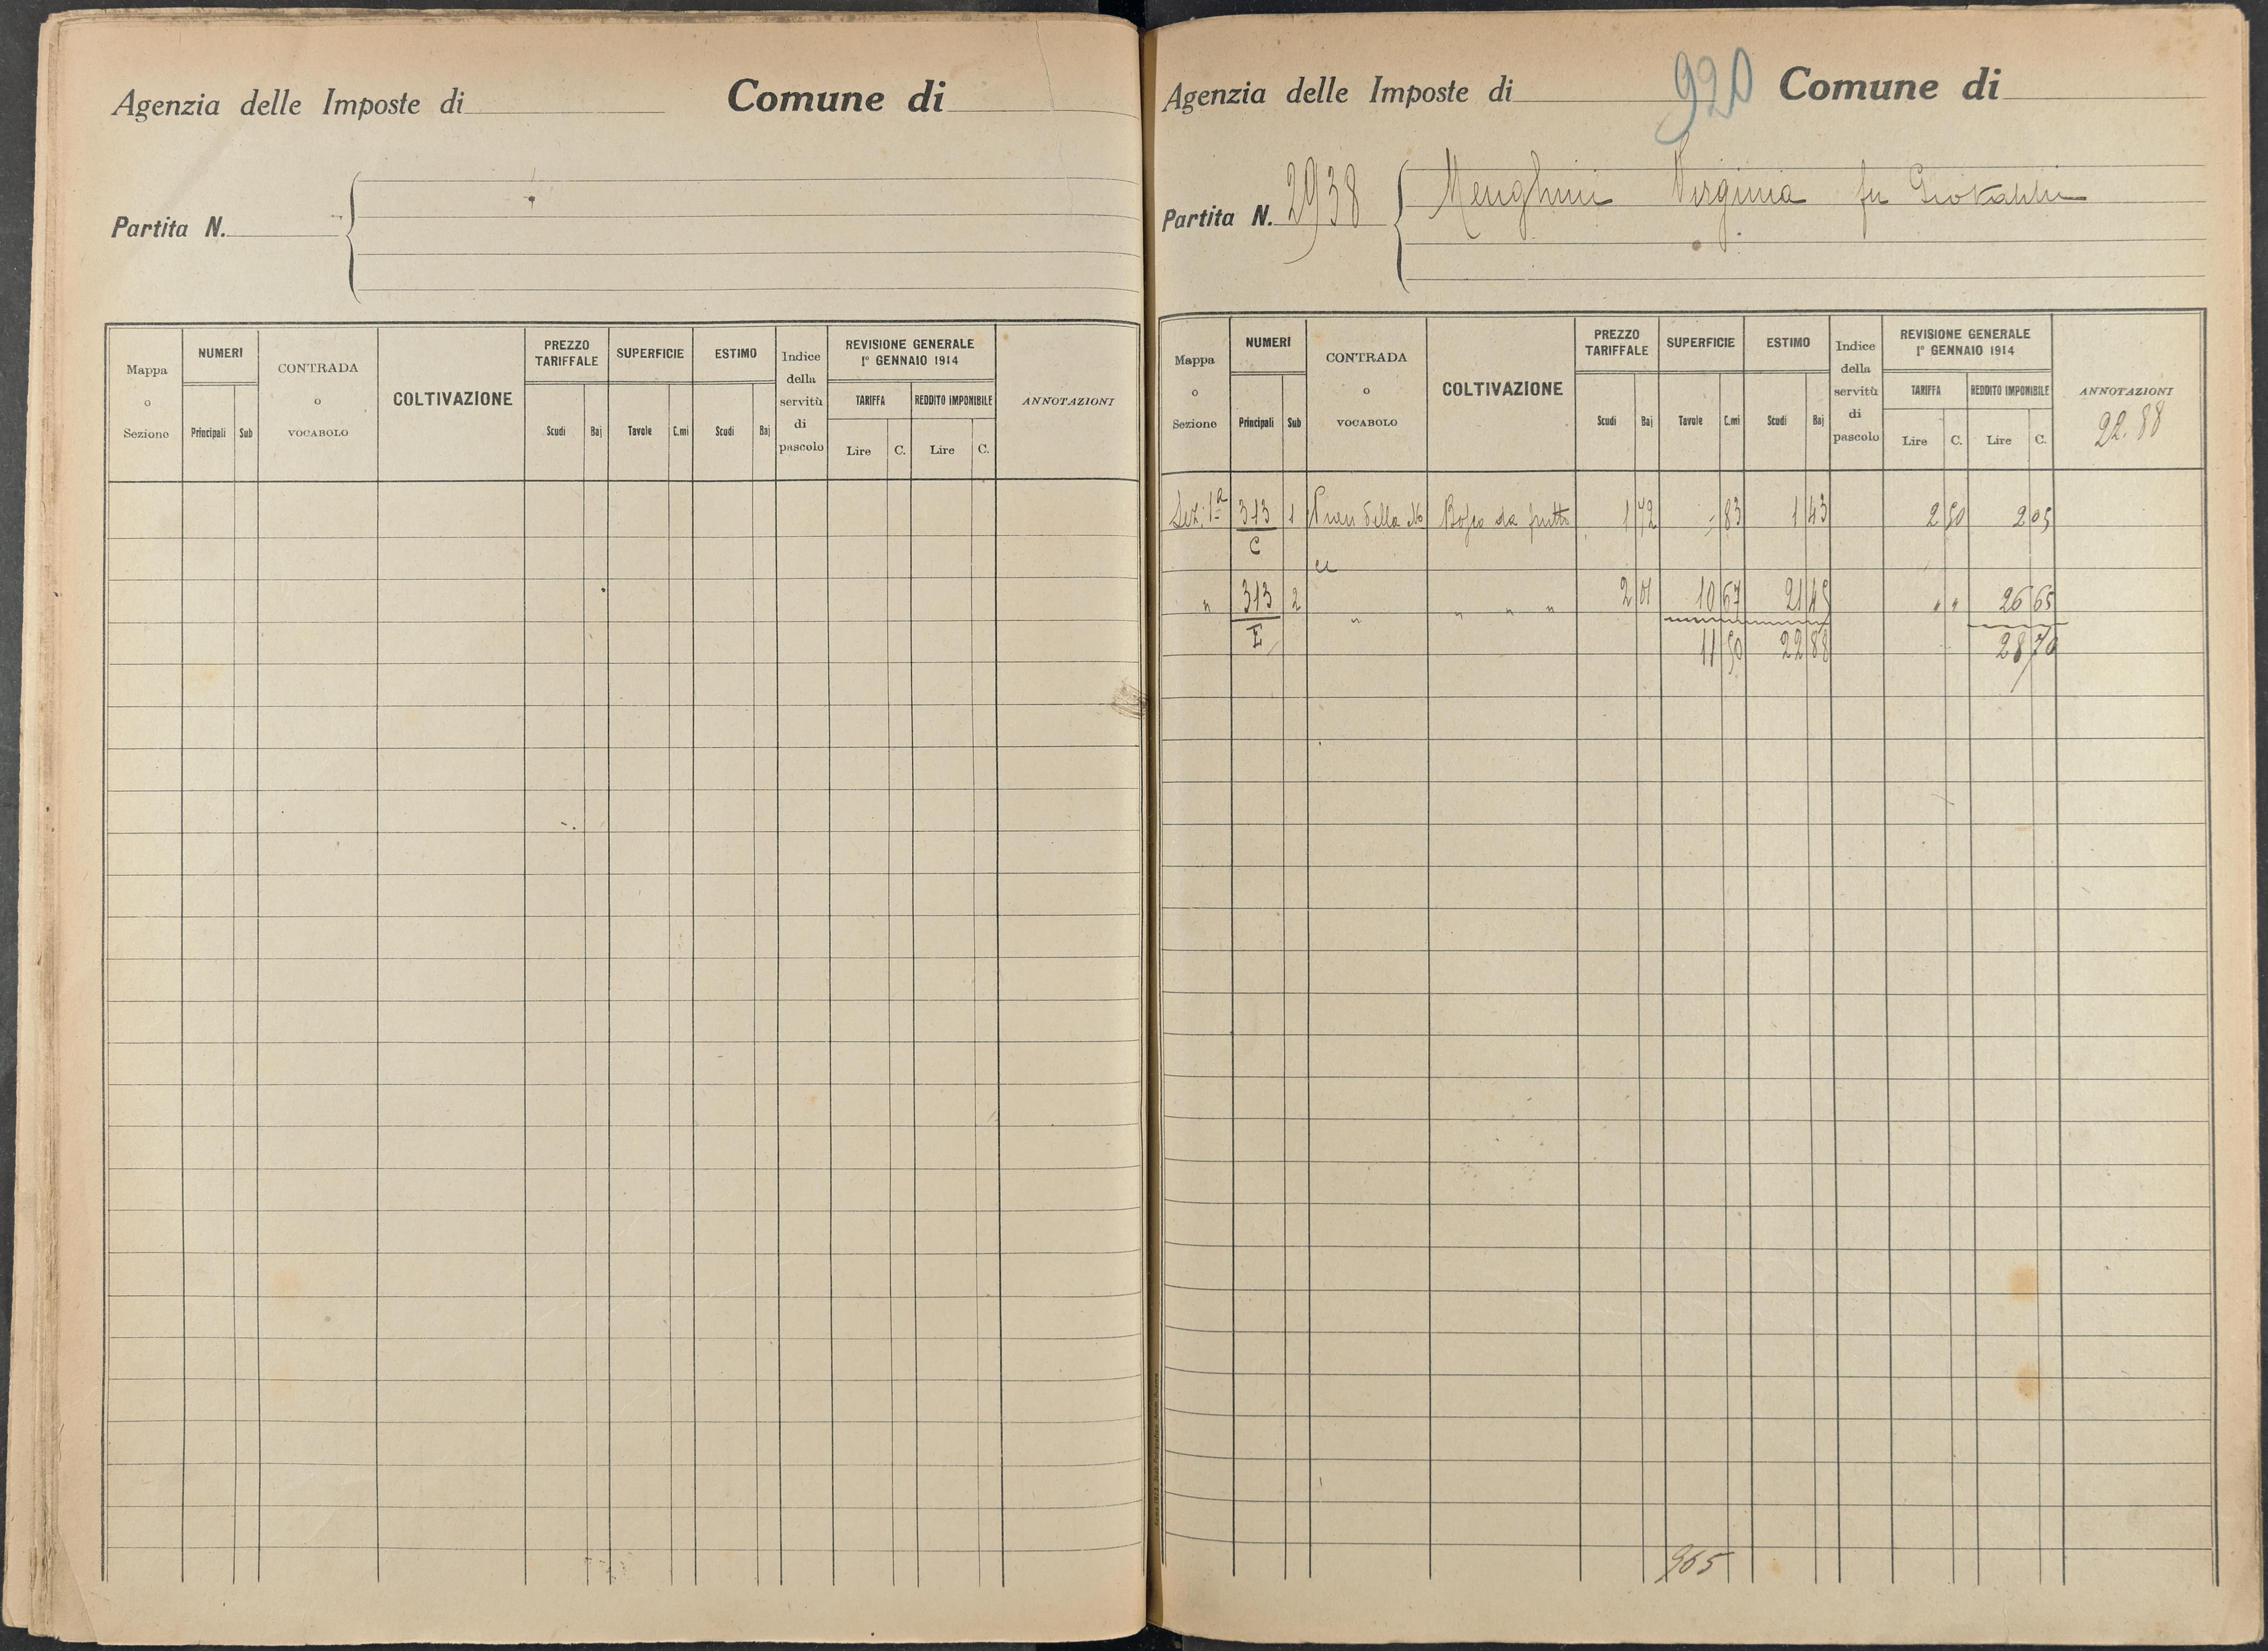 Agenzia delle Imposte di Comune di
Partita N.
Mappa o Sezione NUMERI Principali Sub CONTRADA o VOCABOLO COLTIVAZIONE PREZZO TARIFFALE Scudi Baj SUPERFICIE Tavole C.mi ESTIMO Scudi Baj Indice della servitù di pascolo REVISIONE GENERALE 1° GENNAIO 1914 TARIFFA Lire C. REDDITO IMPONIBILE Lire C. ANNOTAZIONI
Agenzia delle Imposte di 920 Comune di
Partita N. 2938 Menghini Virginia fu
Mappa o Sezione NUMERI Principali Sub CONTRADA o VOCABOLO COLTIVAZIONE PREZZO TARIFFALE Scudi Baj SUPERFICIE Tavole C.mi ESTIMO Scudi Baj Indice della servitù di pascolo REVISIONE GENERALE 1° GENNAIO 1914 TARIFFA Lire C. REDDITO IMPONIBILE Lire C. ANNOTAZIONI
22.88
Sez: 1ª 313 1 della No Bosco da frutto 1 72 - 83 1 43 2 50 2 05
C
ce
" 313 2 " " " " 2 01 10 67 21 45 " " 26 65
E 11 50 22 88 28 70
965